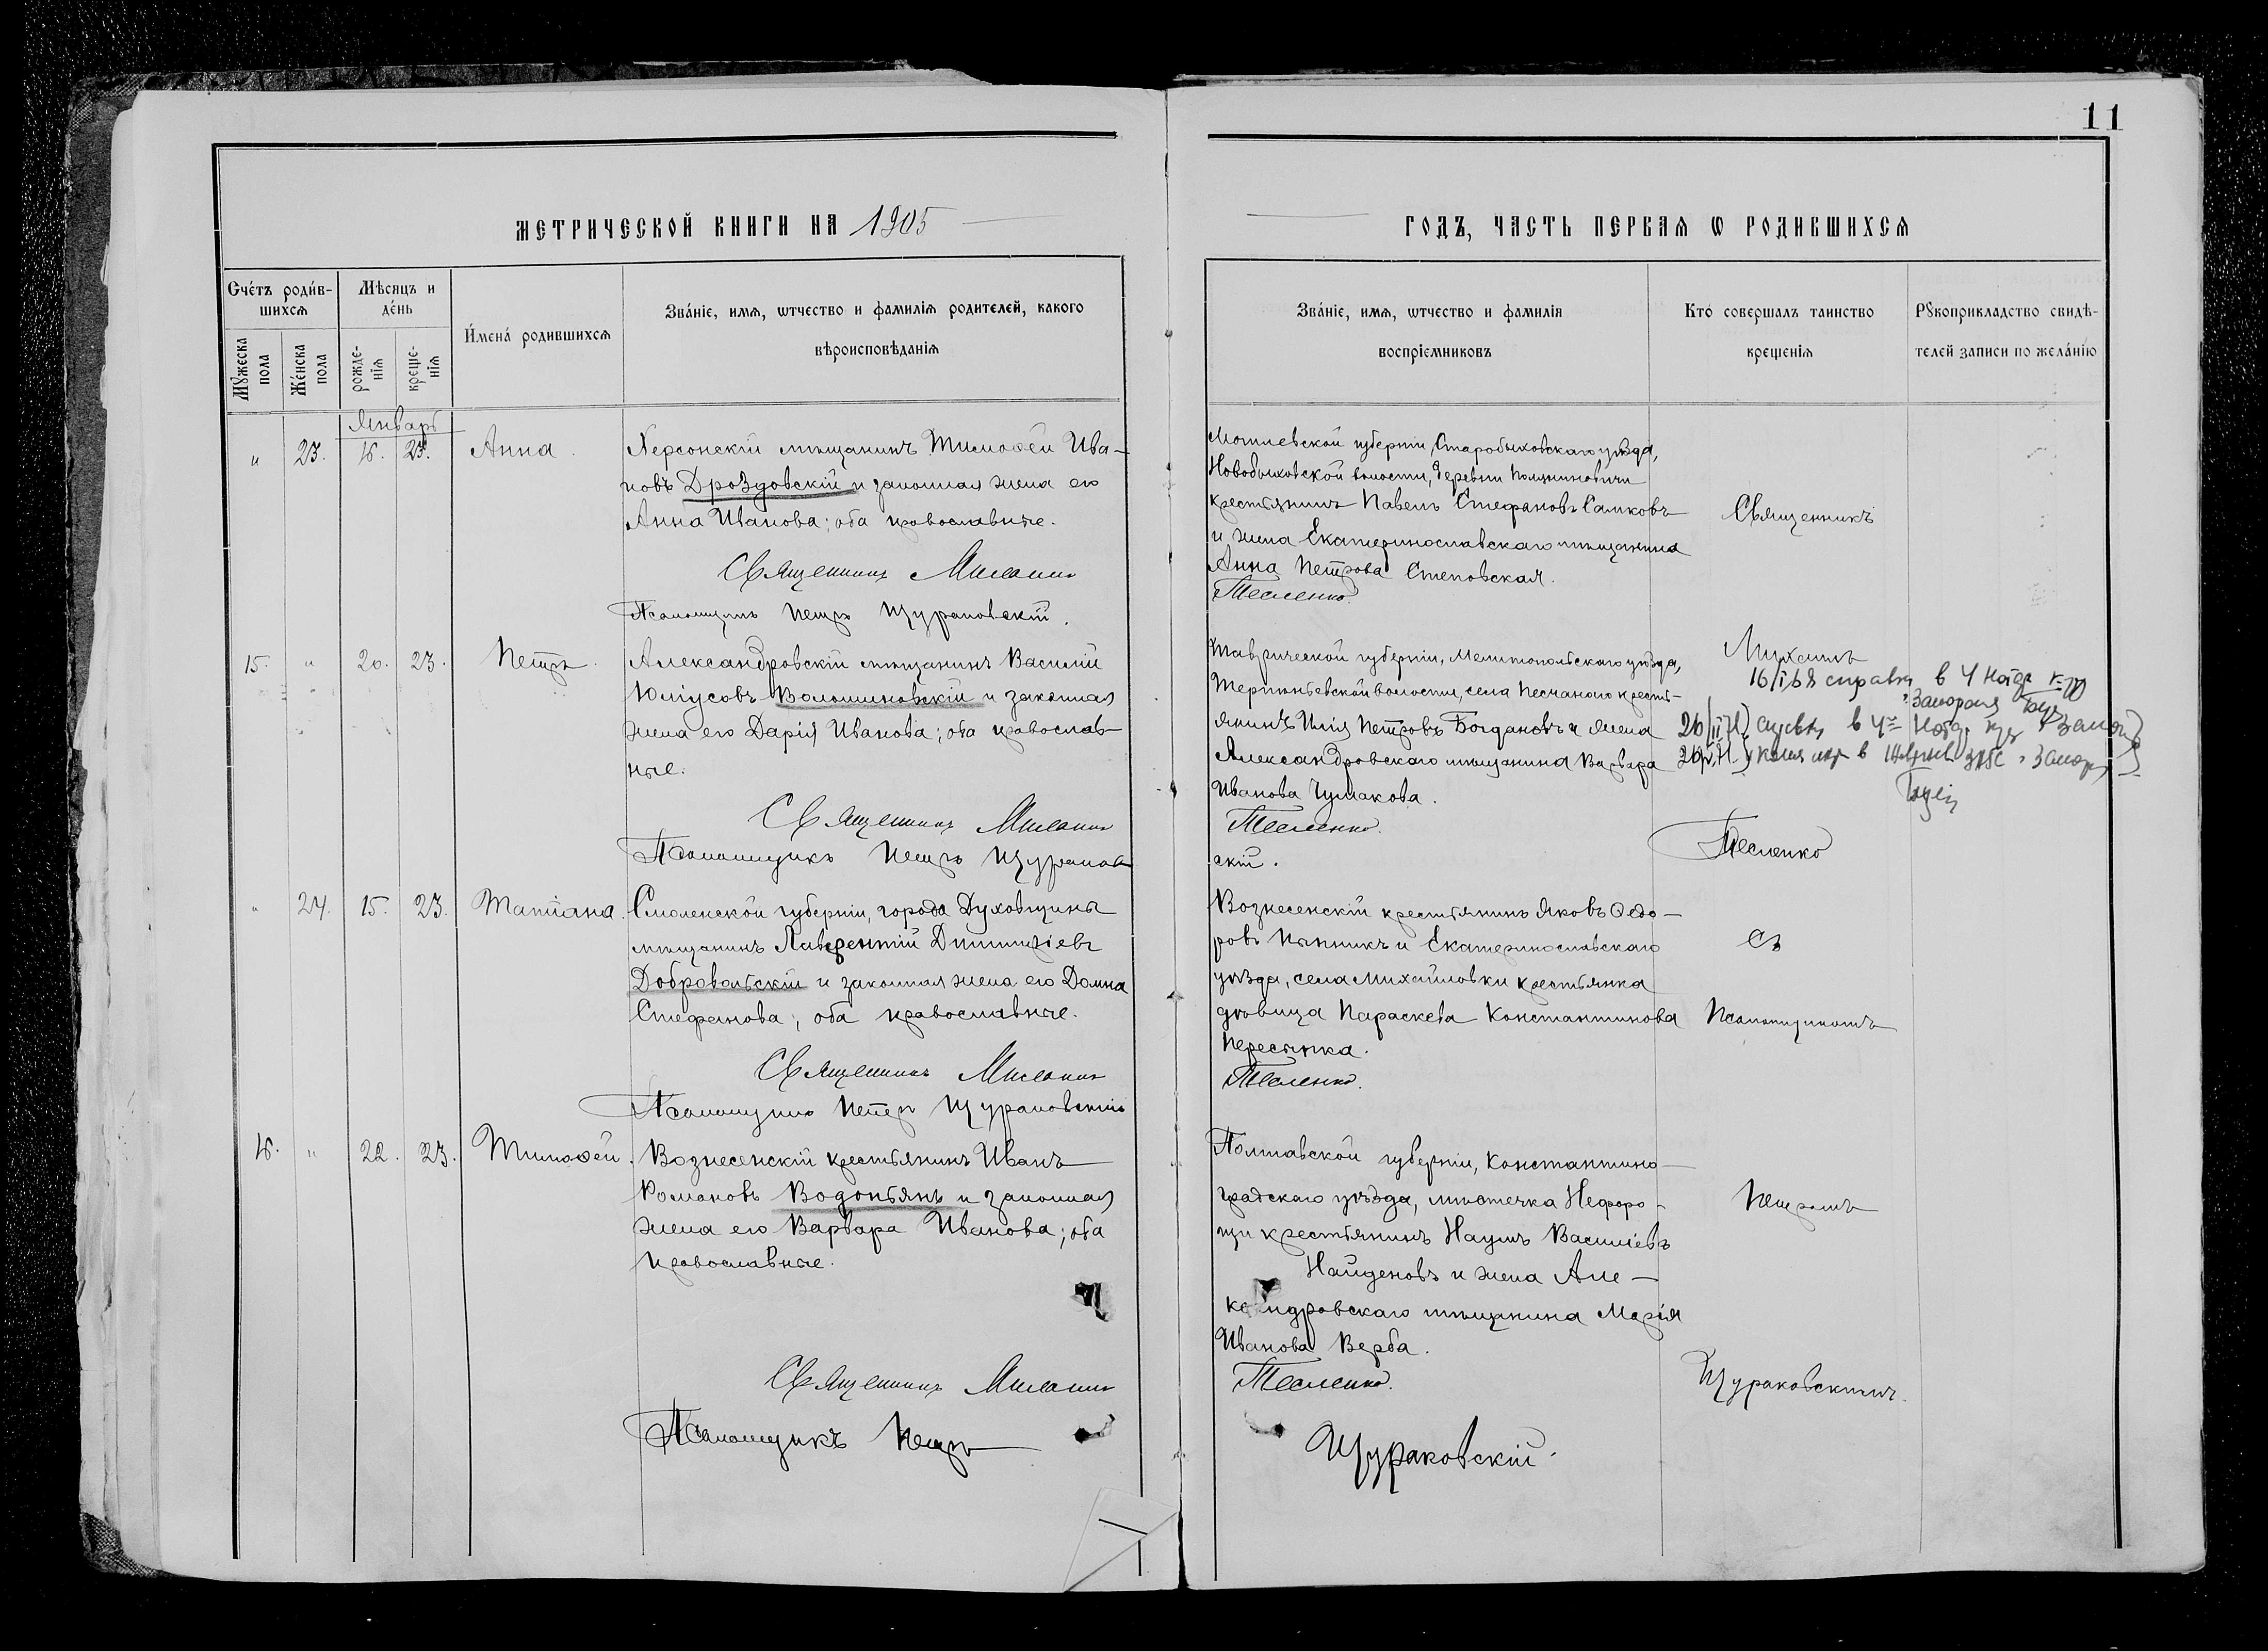 11
МЕТРИЧЕСКОЙ КНИГИ НА 1905
ГОДЪ, ЧАСТЬ ПЕРВАЯ Ѡ РОДИВШИХСЯ
Счéтъ роди́вшихсѧ
Мꙋ́жеска пола
Жéнска пола
Мѣсяцъ и дéнь
рожденїѧ
крещенїѧ
И́мена́ родившихсѧ
Зва́нїе, имѧ, ѡтчество и фамилїѧ родителей, какого
вѣроисповѣданїѧ
Зва́нїе, имѧ, ѡтчество и фамилїѧ
воспрїемниковъ
Кто́ совершалъ таинство
крещенїѧ
Рꙋкоприкладство свидѣ-
телей записи по жела́нїю
Январь
" 23. 16. 23. Анна.
Херсонскій мѣщанинъ Тимоѳей Ива-
новъ Дроздовскій и законная жена его
Анна Иванова; оба православные.
Священникъ
Псаломщикъ Петръ Щураковскій.
Могилевской губерніи, Старобыховскаго уѣзда,
Новобыховской волости, деревни
крестьянинъ Павелъ Стефановъ Самковъ
и жена Екатеринославскаго мѣщанина
Анна Петрова Степовская.
Тесленко.
Священникъ
15. " 20. 23. Петръ.
Александровскій мѣщанинъ Василій
Юліусовъ Волошиновскій и законная
жена его Дарія Иванова; оба православ-
ные.
Священникъ
Псаломщикъ Петръ Щураков
скій.
Таврической губерніи, Мелитопольскаго уѣзда,
Терпѣньевской волости, села Песчаного кресть-
янинъ Илія Петровъ Богдановъ и жена
Александровскаго мѣщанина Варвара
Иванова Чумакова.
Тесленко.
Михаилъ
16/I 68 справка в
Тесленко
" 24. 15. 23. Татіана.
Смоленской губерніи, города Духовщины
мѣщанинъ Лаврентій Димитріевъ
Добровольскій и законная жена его Домна
Стефанова; оба православные.
Священникъ
Псаломщикъ Петръ Щураковскій
Вознесенскій крестьянинъ Яковъ Ѳедо-
ровъ и Екатеринославскаго
уѣзда, села Михайловки крестьянка
дѣвица Параскева Константинова
Тесленко.
Съ
Псаломщикомъ
16. " 22. 23. Тимоѳей.
Вознесенскій крестьянинъ Иванъ
Романовъ Водопьянъ и законная
жена его Варвара Иванова; оба
православные.
Священникъ
Псаломщикъ Петръ
Полтавской губерніи, Константино-
градскаго уѣзда, мѣстечка Нефоро-
щи крестьянинъ Наумъ Василіевъ
Найденовъ и жена Але-
ксандровскаго мѣщанина Марія
Иванова Верба.
Тесленко.
Щураковскій.
Петромъ
Щураковскимъ.